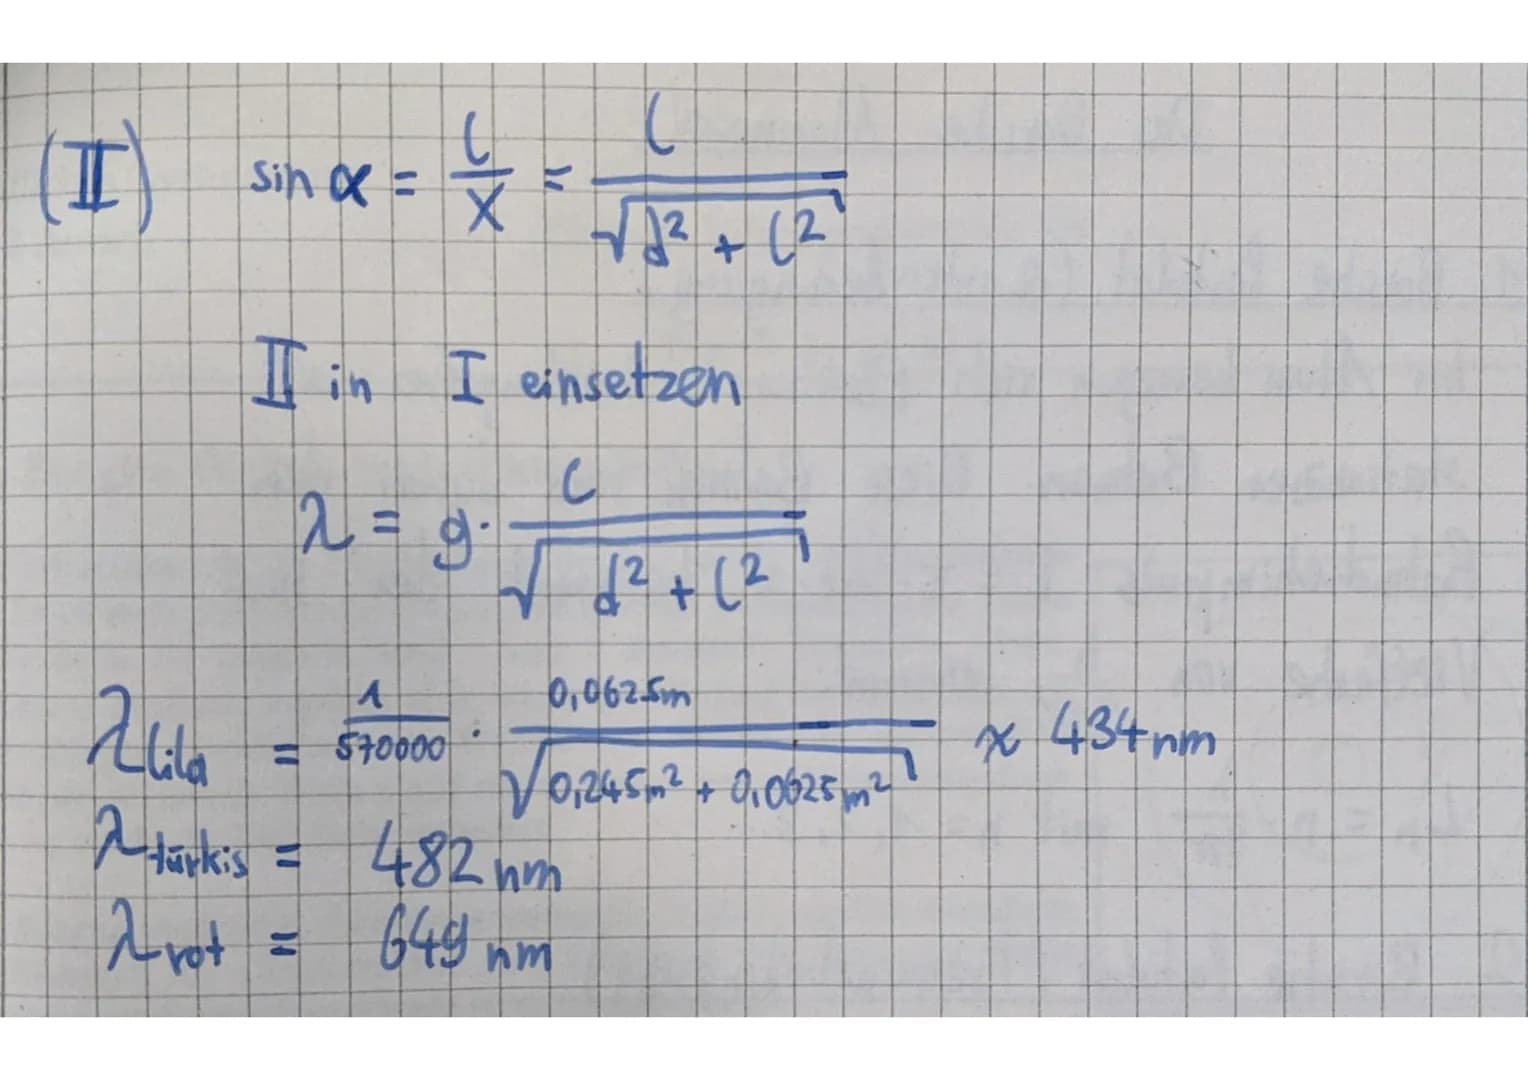 (II) sin α = l/x = l/√(d² + l²)
II in I einsetzen
λ = g · l/√(d² + l²)
λlila = 1/570000 · 0,0625m/√(0,245m² + 0,0625m²) ≈ 434nm
λtürkis = 482nm
λrot = 649nm